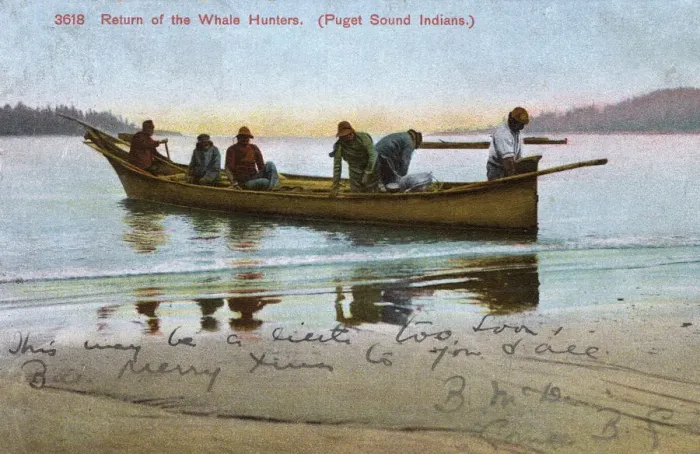 3618 Return of the Whale Hunters. (Puget Sound Indians.)
This may be a little too soon,
But Merry Xmas to you & all.
B. Mc
B.